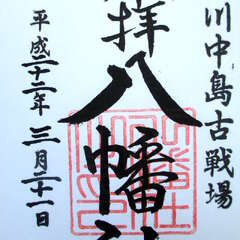 川中島古戦場
拝八幡社
平成二十二年三月二十一日